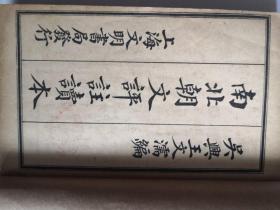 吳興王文濡編
南北朝文評註讀本
上海文明書局發行